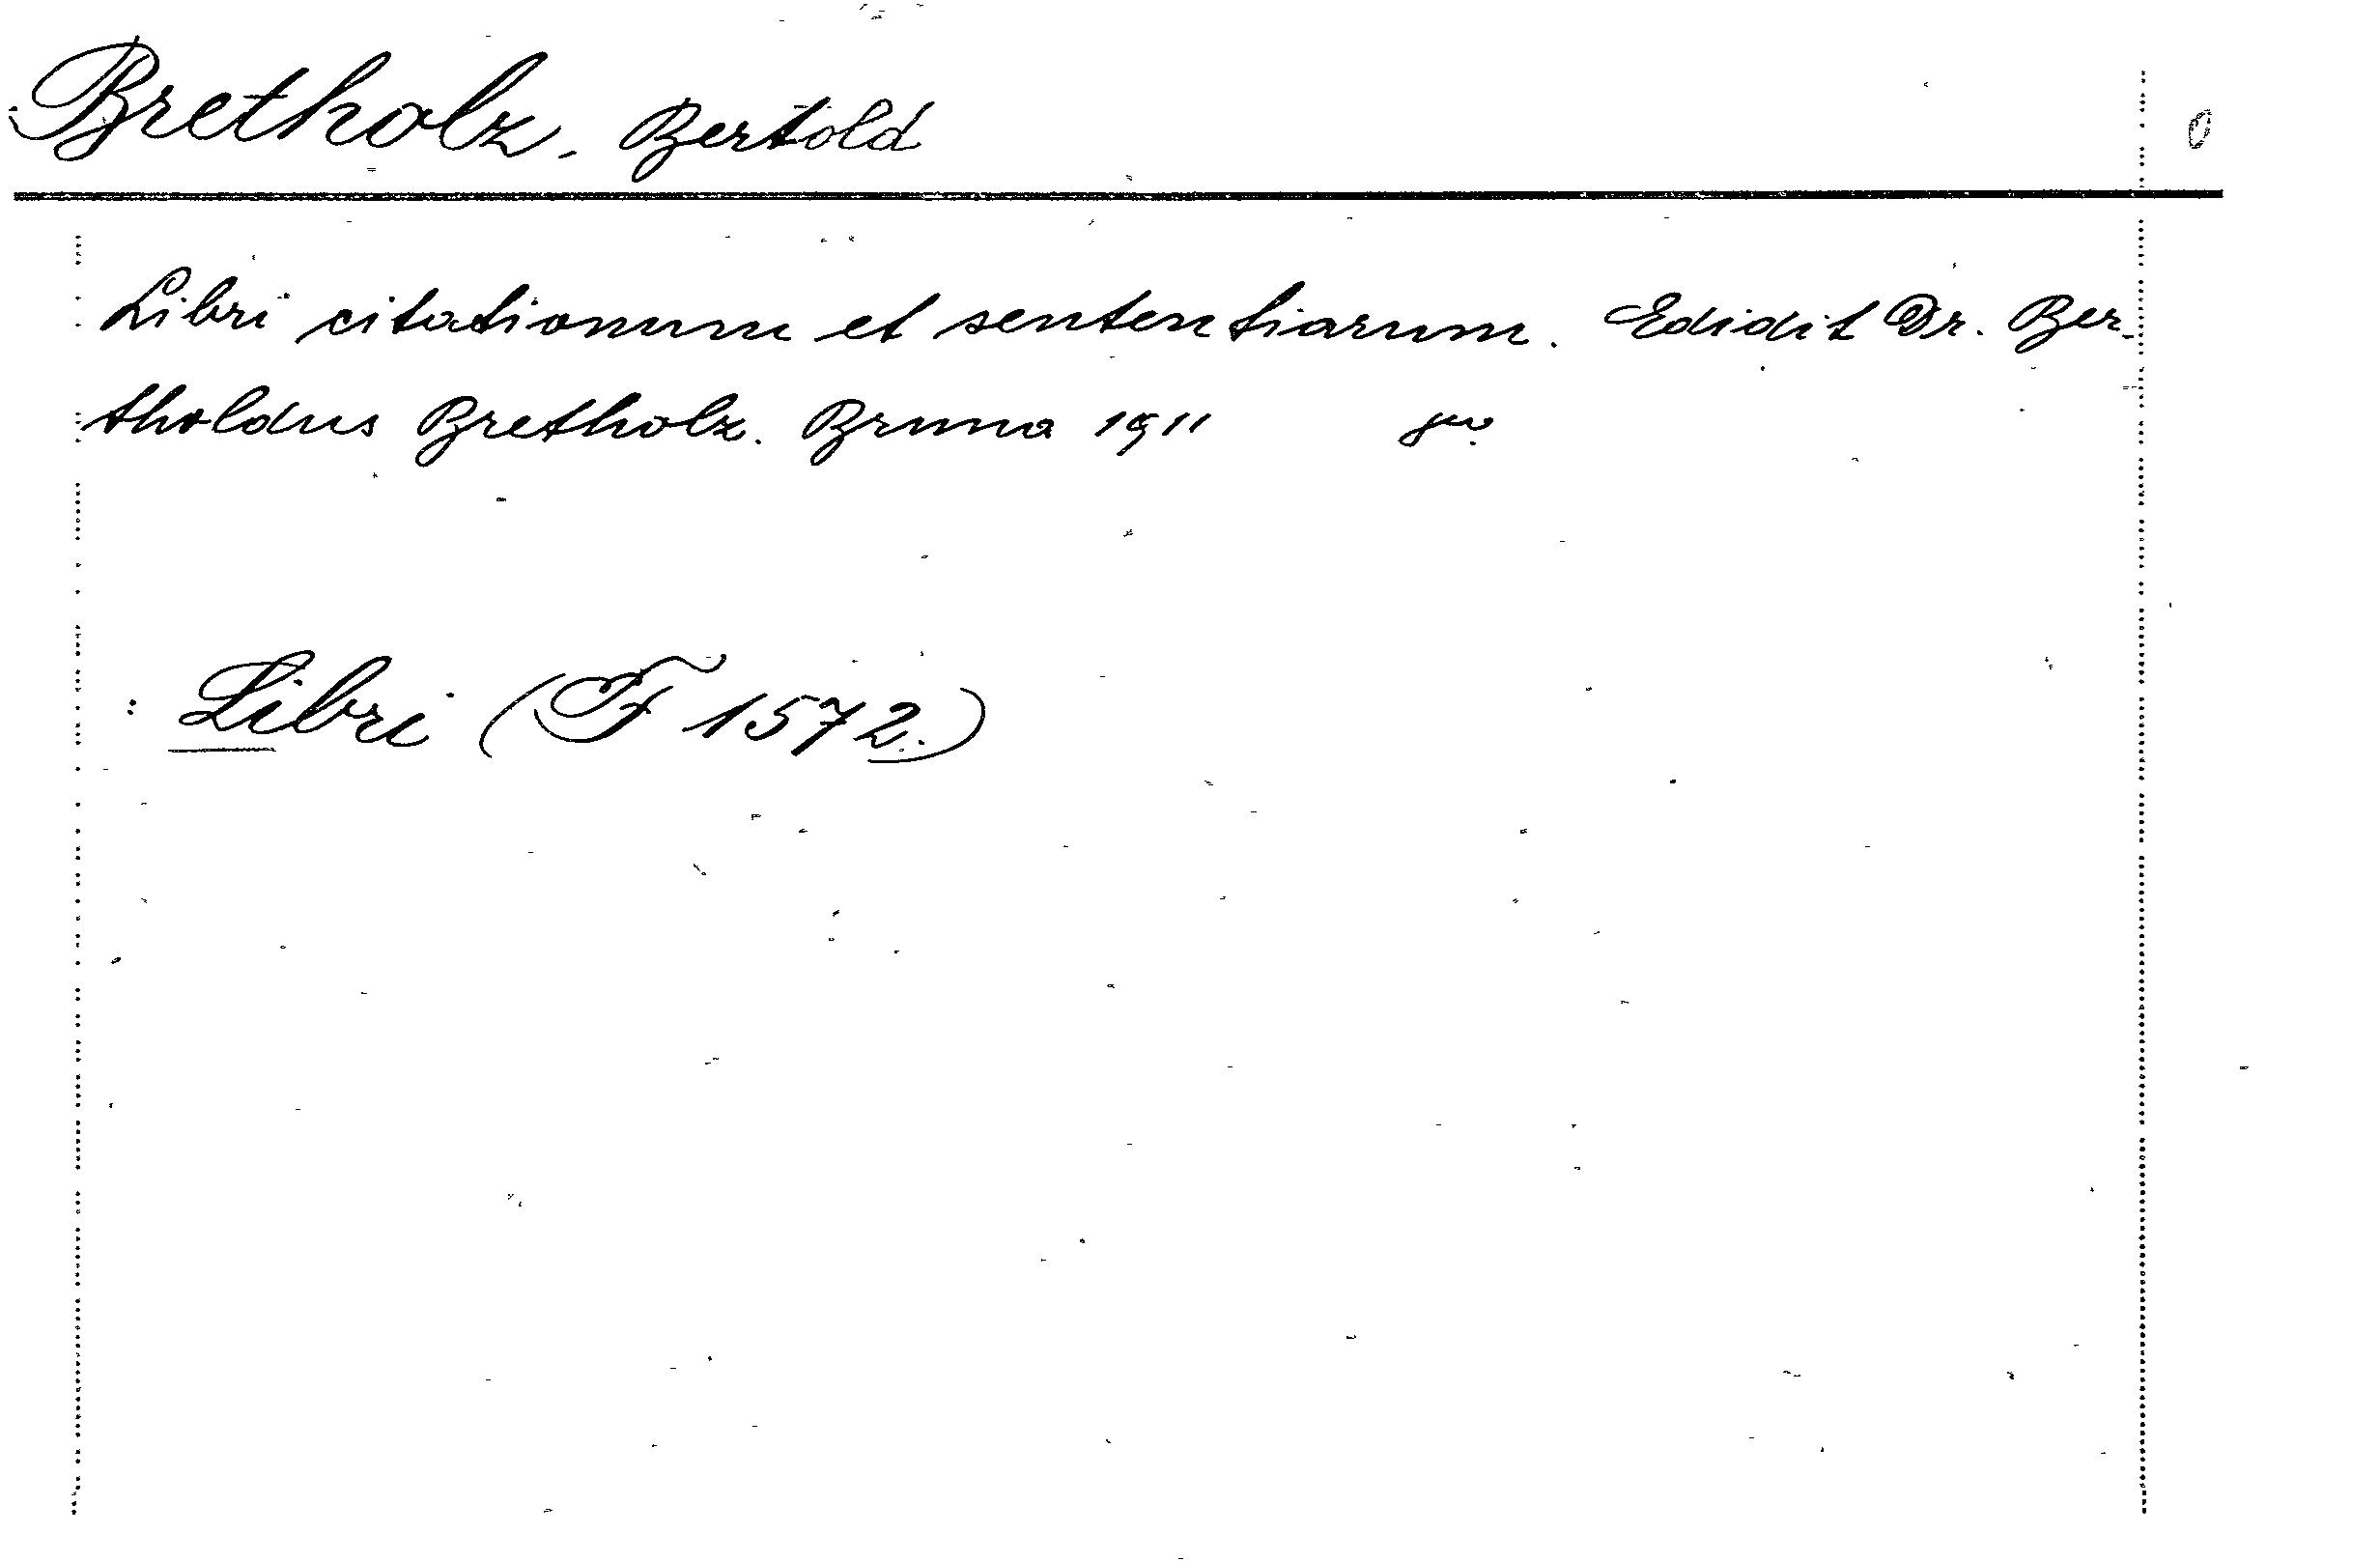 Bretholz, Bertold
Libri citationum et sententiarum. Edidit Dr. Ber-
tholdus Bretholz. Bruna 1911
: Libri (F 1572.)